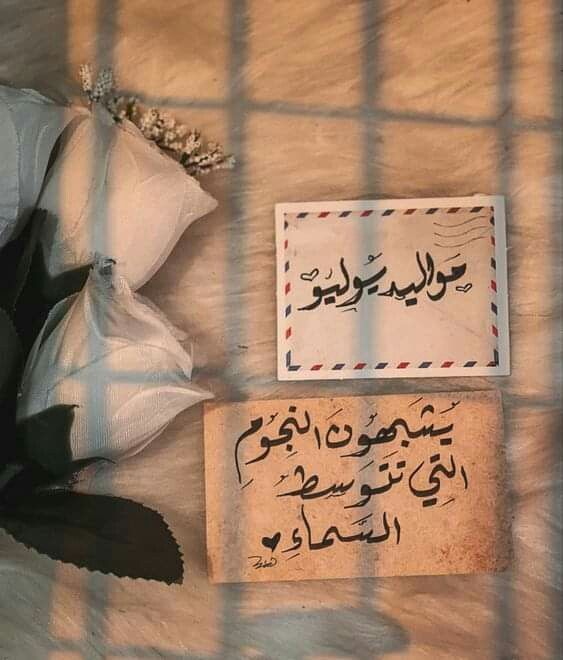 مَواليد يُوليُو
يُشبَهُونَ النجُومِ
التِي تَتَوسِطُ
السَّماءِ